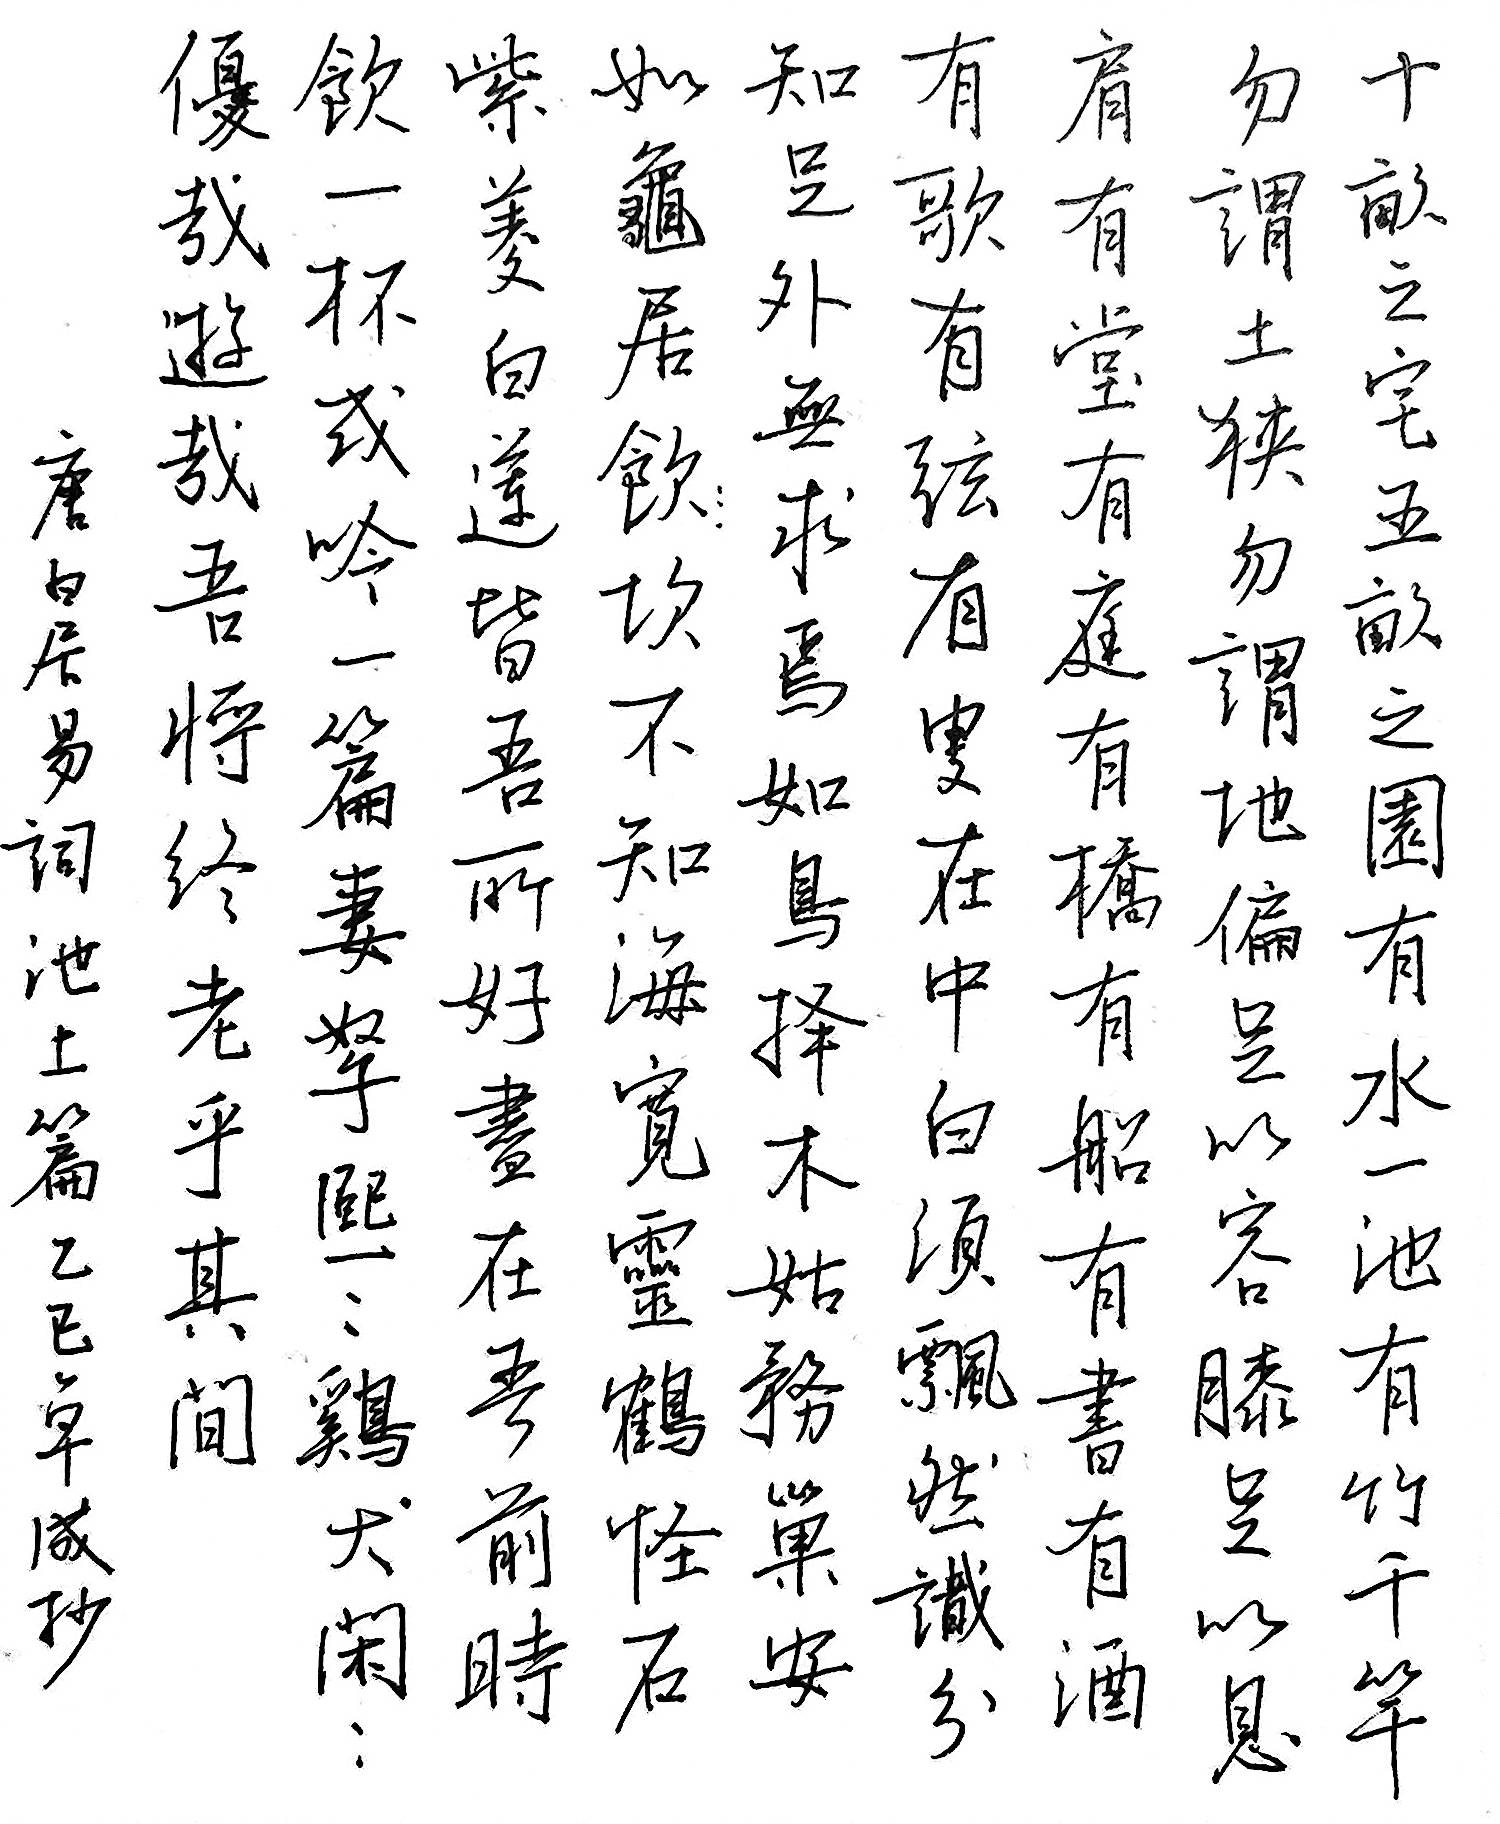 十畝之宅五畝之園有水一池有竹千竿
勿謂土狹勿謂地偏足以容膝足以息
肩有堂有庭有橋有船有書有酒
有歌有弦有叟在中白須飄然識分
知足外無求焉如鳥择木姑務巢安
如龜居飲坎不知海寬靈鶴怪石
紫菱白蓮皆吾所好盡在吾前時
飲一杯或吟一篇妻孥熙〻鷄犬閑〻
優哉遊哉吾將终老乎其間
唐白居易詞池上篇乙巳草成抄